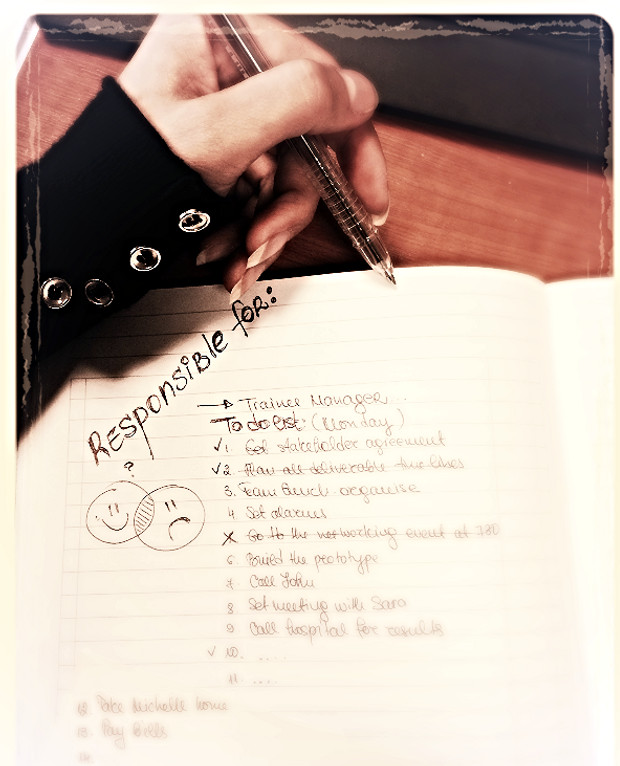 Responsible for:
→ Trainee Manager
To do list: (Monday)
✓ 1. Get stakeholder agreement
✓ 2. Plan all deliverable time lines
3. Team lunch organise
4. Set alarms
X Go to the networking event at 730
6 Build the prototype
7. Call John
8 Set meeting with Sara
9 Call hospital for results
✓ 10. ....
11. ....
?
12. Take Michelle home
13. Pay bills
14.